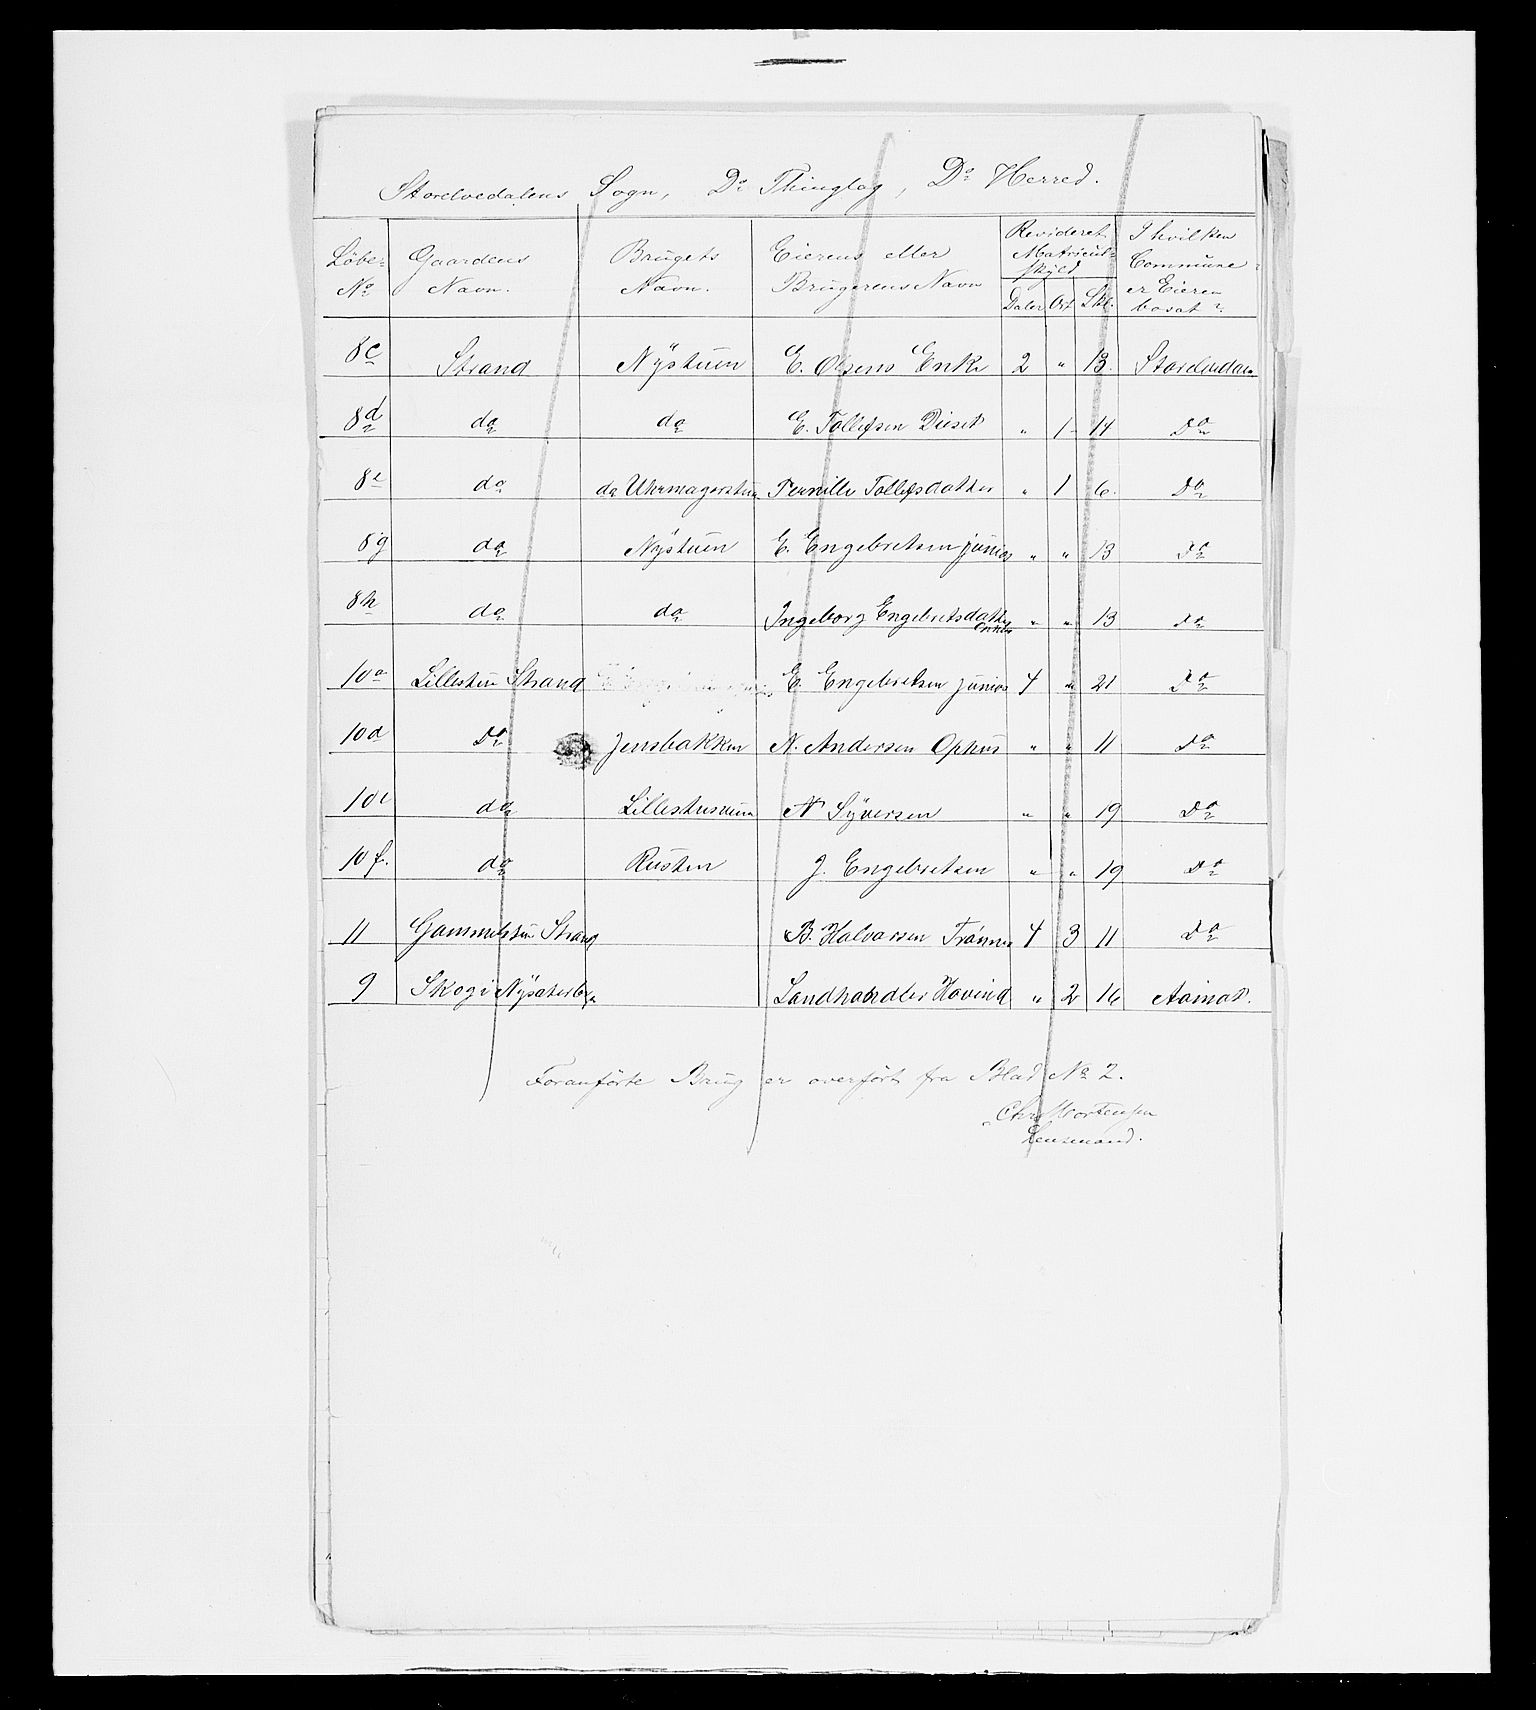 Storelvedalens Sogn, Do Thinglag, Do Herred.
Löbe No Gaardens Navn. Brugets Navn. Eierens eller Brugerens Navn Revideret Matriculskyld Daler Ort Skl. I hvilken Commune er Eieren bosat?
8c Strand Nÿstuen E. Olsens Enke 2 " 13. Storelvedalen
8d do do E. Tollefsen Dieset " 1 14 Do
8e do do Uhrmagerstuen Pernille Tollefsdatter " 1 6. Do
8g do Nÿstuen E. Engebretsen junior " " 13 Do
8h do do Ingeborg Engebretsdatter Enke " " 13 Do
10a Lillestu Strand E. Engebretsen junior 4 " 21 Do
10d Do Jensbakken N. Andersen Ophus " " 11 Do
10e do N Sÿversen " " 19 Do
10f. do Rusten J. Engebretsen " " 19 Do
11 Gammelstu Strand B. Halvorsen Trönnes 4 3 11 Do
9 Skog i Landhandler Hovind " 2 16 Aamot.
Foranförte Brug er overfört fra Blad No 2.
Chr Mortensen
Lensmand.